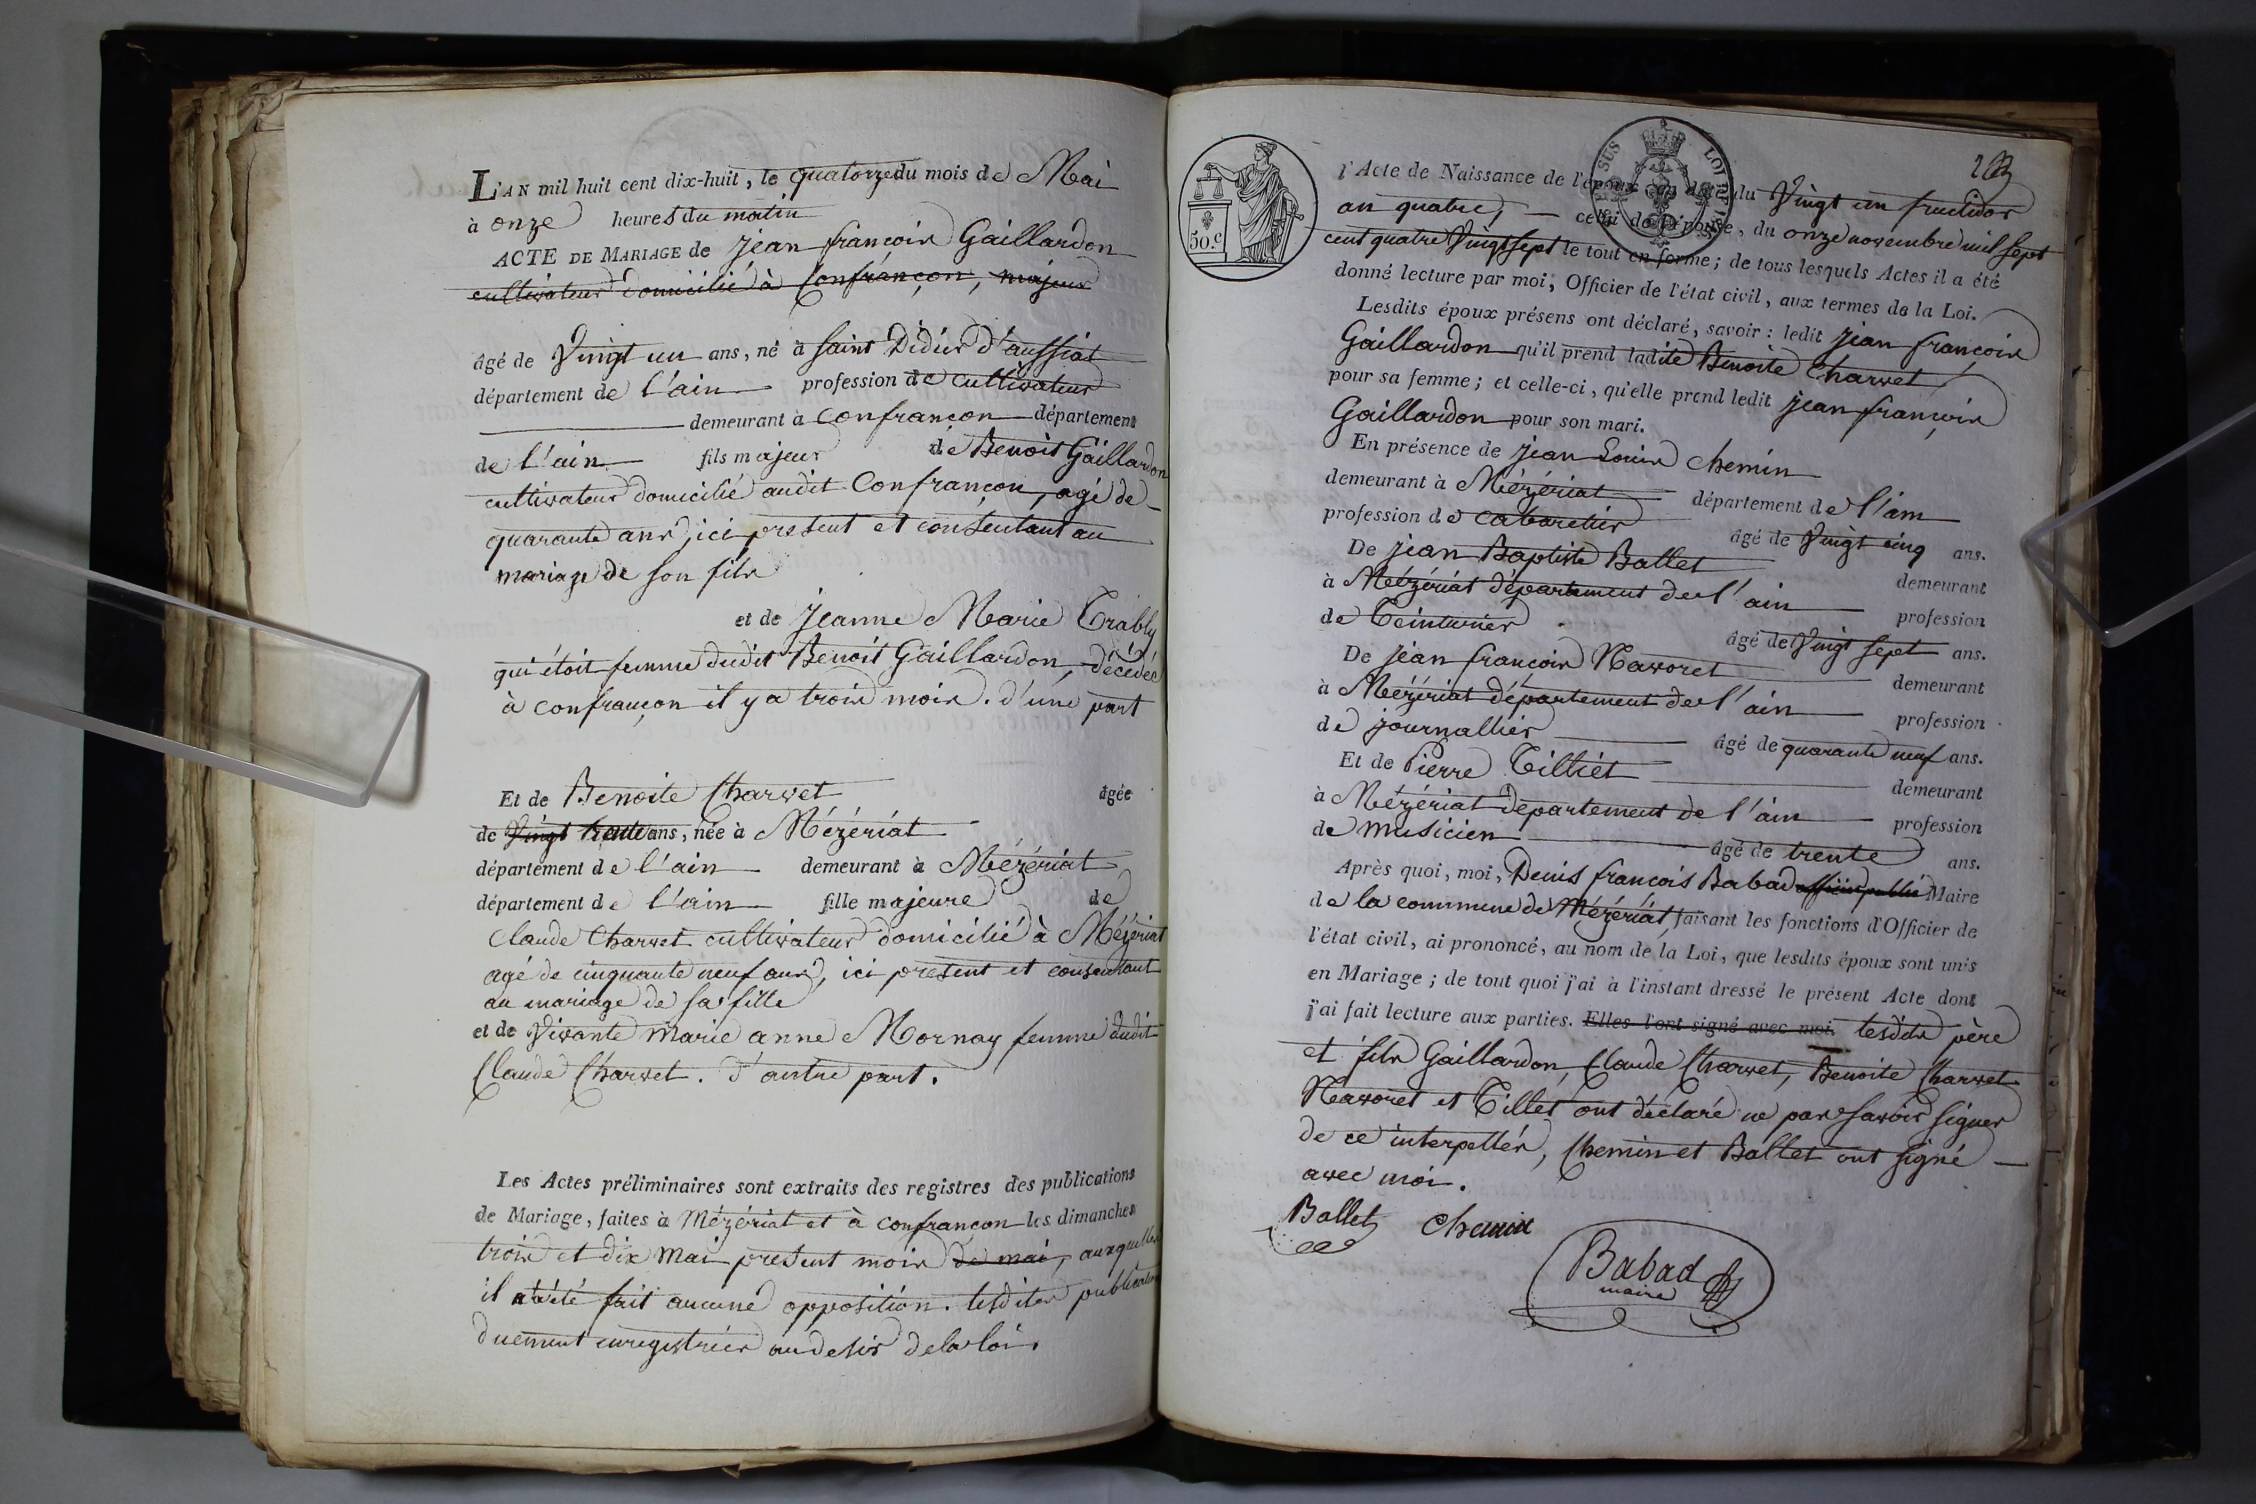 L'AN mil huit cent dix-huit, le quatorze du mois de Mai
à onze heures du matin
ACTE DE MARIAGE de jean françois Gaillardon
cultivateur domicilié à Confrançon, majeur
âgé de Vingt un ans, né à saint Didier d'aussiat
département de l'ain profession de cultivateur
demeurant à confrançon département
de l'ain fils majeur de Benoit Gaillardon
cultivateur domicilié audit Confrançon, agé de
quarante ans, ici présent et consentant au
mariage de son fils
et de jeanne Marie Trably
qui étoit femme dudit Benoit Gaillardon, décédée
à confrançon il y a trois mois. d'une part
Et de Benoite Charvet agée
de Vingt trente ans, née à Mézériat
département de l'ain demeurant à Mézériat
département de l'ain fille majeure de
Claude Charvet cultivateur domicilié à Mézériat
agé de cinquante neuf ans, ici présent et consentant
au mariage de sa fille
et de Vivante marie anne Mornay femme dudit
Claude Charvet. d'autre part.
Les Actes préliminaires sont extraits des registres des publications
de Mariage, faites à Mézériat et à confrançon les dimanches
trois et dix Mai présent mois de mai, auxquelles
il n'a été fait aucune opposition. lesdites publications
duement enregistrées au desir de la loi.
50.c
203
l'Acte de Naissance de l'époux en date du Vingt un fructidor
an quatre, celui de l'épouse, du onze novembre mil sept
cent quatre Vingt sept le tout en forme; de tous lesquels Actes il a été
donné lecture par moi, Officier de l'état civil, aux termes de la Loi.
Lesdits époux présens ont déclaré, savoir: ledit jean françois
Gaillardon qu'il prend ladite Benoite Charvet
pour sa femme; et celle-ci, qu'elle prend ledit jean françois
Gaillardon pour son mari.
En présence de jean Louis chemin
demeurant à Mézériat département de l'ain
profession de cabaretier âgé de Vingt cinq ans.
De jean Baptiste Ballet demeurant
à Mézériat département de l'ain profession
de Teinturier âgé de Vingt sept ans.
De jean françois Navoret demeurant
à Mézériat département de l'ain profession
de journallier âgé de quarante neuf ans.
Et de Pierre Tilliet demeurant
à Mézériat département de l'ain profession
de musicien âgé de trente ans.
Après quoi, moi, Denis françois Babad officier public Maire
de la commune de Mézériat, faisant les fonctions d'Officier de
l'état civil, ai prononcé, au nom de la Loi, que lesdits époux sont unis
en Mariage; de tout quoi j'ai à l'instant dressé le présent Acte dont
j'ai fait lecture aux parties. Elles l'ont signé avec moi. lesdits père
et fils Gaillardon, Claude Charvet, Benoite Charvet
Navoret et Tillet ont déclaré ne pas savoir signer
de ce interpellés, Chemin et Ballet ont signé
avec moi.
Ballet chemin
Babad
maire